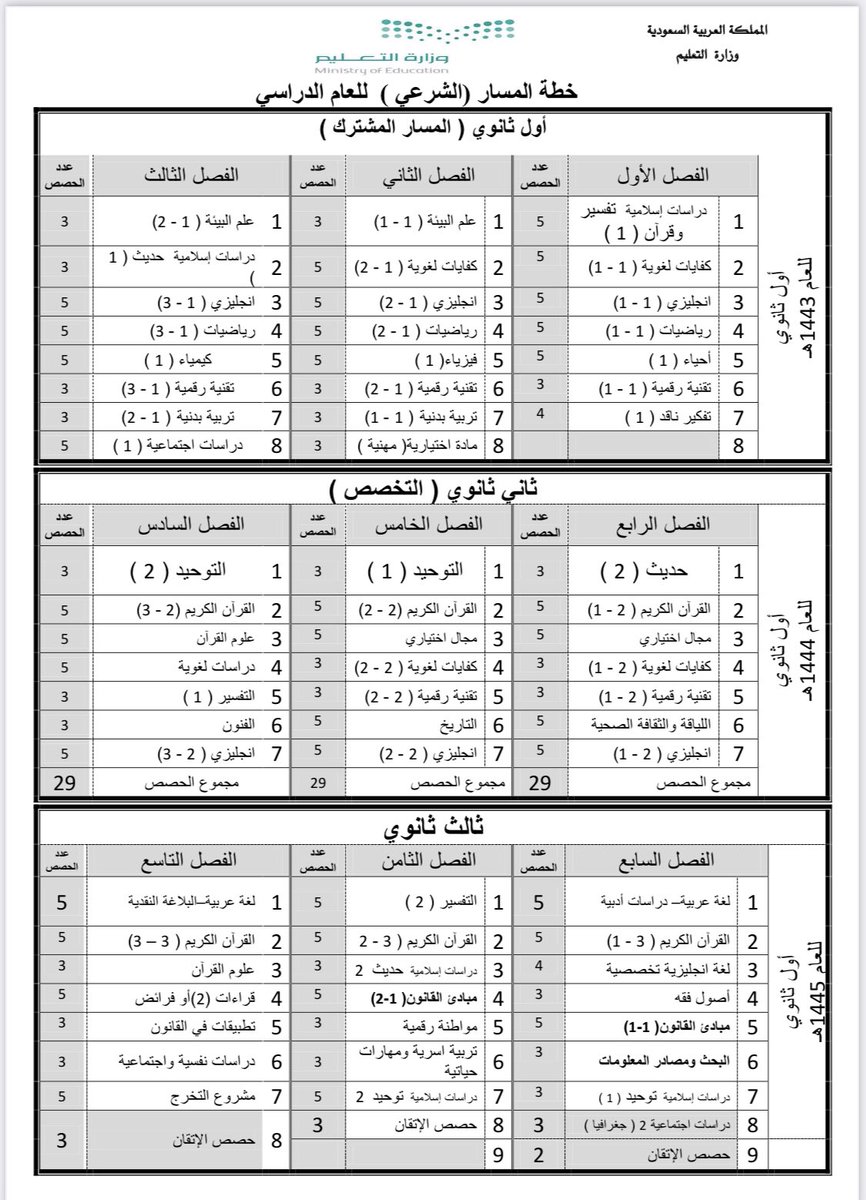 المملكة العربية السعودية
وزارة التعليم
وزارة التعليم
Ministry of Education
خطة المسار (الشرعي ) للعام الدراسي
أول ثانوي ( المسار المشترك )
الفصل الأول عدد الحصص الفصل الثاني عدد الحصص الفصل الثالث عدد الحصص
للعام 1443هـ أول ثانوي
1 دراسات إسلامية تفسير وقرآن ( 1 ) 5 1 علم البيئة ( 1 - 1) 3 1 علم البيئة ( 1 - 2) 3
2 كفايات لغوية ( 1 - 1) 5 2 كفايات لغوية ( 1 - 2) 5 2 دراسات إسلامية حديث ( 1 ) 3
3 انجليزي ( 1 - 1) 5 3 انجليزي ( 1 - 2) 5 3 انجليزي ( 1 - 3) 5
4 رياضيات ( 1 - 1) 5 4 رياضيات ( 1 - 2) 5 4 رياضيات ( 1 - 3) 5
5 أحياء ( 1 ) 5 5 فيزياء( 1 ) 5 5 كيمياء ( 1 ) 5
6 تقنية رقمية ( 1 - 1) 3 6 تقنية رقمية ( 1 - 2) 3 6 تقنية رقمية ( 1 - 3) 3
7 تفكير ناقد ( 1 ) 4 7 تربية بدنية ( 1 - 1) 3 7 تربية بدنية ( 1 - 2) 3
8 8 مادة اختيارية( مهنية ) 3 8 دراسات اجتماعية ( 1 ) 5
ثاني ثانوي ( التخصص )
الفصل الرابع عدد الحصص الفصل الخامس عدد الحصص الفصل السادس عدد الحصص
للعام 1444هـ أول ثانوي
1 حديث ( 2 ) 3 1 التوحيد ( 1 ) 3 1 التوحيد ( 2 ) 3
2 القرآن الكريم ( 2 - 1) 5 2 القرآن الكريم (2 - 2) 5 2 القرآن الكريم (2 - 3) 5
3 مجال اختياري 5 3 مجال اختياري 5 3 علوم القرآن 5
4 كفايات لغوية ( 2 - 1) 3 4 كفايات لغوية ( 2 - 2) 3 4 دراسات لغوية 5
5 تقنية رقمية ( 2 - 1) 3 5 تقنية رقمية ( 2 - 2) 3 5 التفسير ( 1 ) 3
6 اللياقة والثقافة الصحية 5 6 التاريخ 5 6 الفنون 3
7 انجليزي ( 2 - 1) 5 7 انجليزي ( 2 - 2) 5 7 انجليزي ( 2 - 3) 5
مجموع الحصص 29 مجموع الحصص 29 مجموع الحصص 29
ثالث ثانوي
الفصل السابع عدد الحصص الفصل الثامن عدد الحصص الفصل التاسع عدد الحصص
للعام 1445هـ أول ثانوي
1 لغة عربية– دراسات أدبية 5 1 التفسير ( 2 ) 5 1 لغة عربية–البلاغة النقدية 5
2 القرآن الكريم ( 3 - 1) 5 2 القرآن الكريم ( 3 - 2 5 2 القرآن الكريم ( 3 – 3) 5
3 لغة انجليزية تخصصية 4 3 دراسات إسلامية حديث 2 3 3 علوم القرآن 3
4 أصول فقه 3 4 مبادئ القانون( 1-2) 5 4 قراءات (2)أو فرائض 5
5 مبادئ القانون( 1-1) 5 5 مواطنة رقمية 3 5 تطبيقات في القانون 3
6 البحث ومصادر المعلومات 3 6 تربية اسرية ومهارات حياتية 3 6 دراسات نفسية واجتماعية 3
7 دراسات إسلامية توحيد ( 1 ) 3 7 دراسات إسلامية توحيد 2 5 7 مشروع التخرج 5
8 دراسات اجتماعية 2 ( جغرافيا ) 3 8 حصص الإتقان 3 8 حصص الإتقان 3
9 حصص الإتقان 2 9